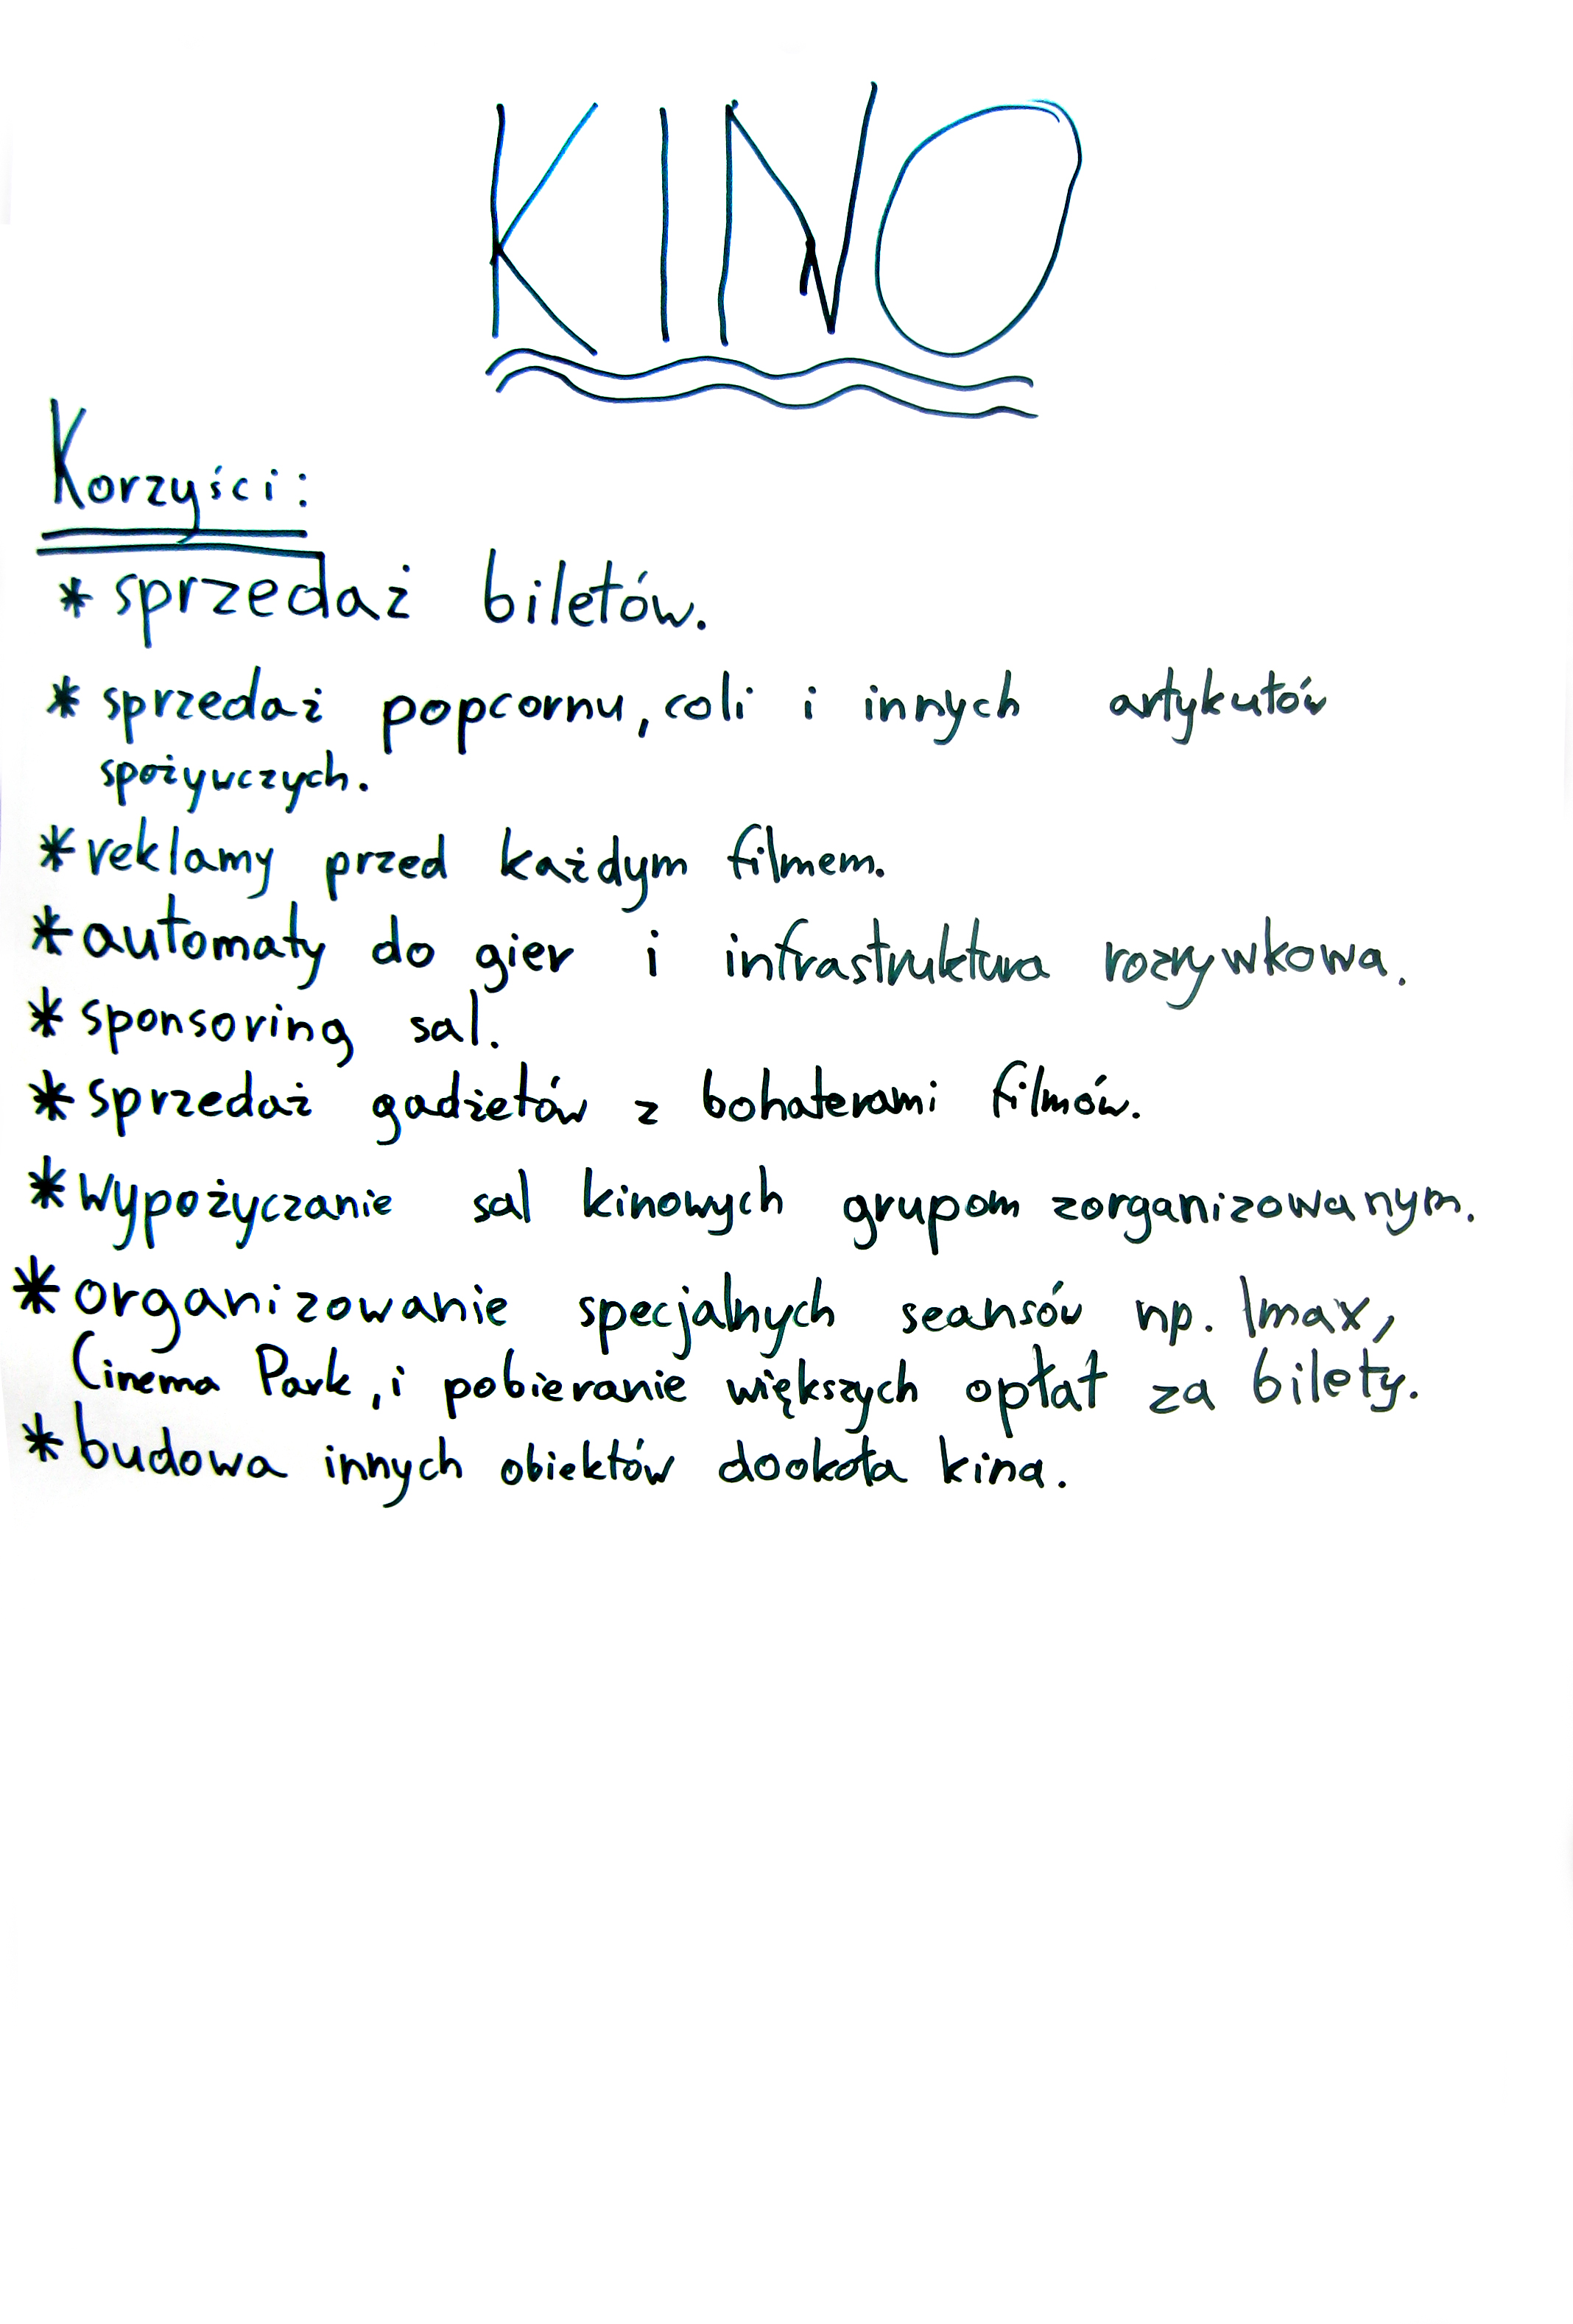 KINO
Korzyści:
* sprzedaż biletów.
* sprzedaż popcornu, coli i innych artykułów
spożywczych.
* reklamy przed każdym filmem.
* automaty do gier i infrastruktura rozrywkowa.
* sponsoring sal.
* sprzedaż gadżetów z bohaterami filmów.
* Wypożyczanie sal kinowych grupom zorganizowanym.
* organizowanie specjalnych seansów np. Imax,
Cinema Park, i pobieranie większych opłat za bilety.
* budowa innych obiektów dookoła kina.